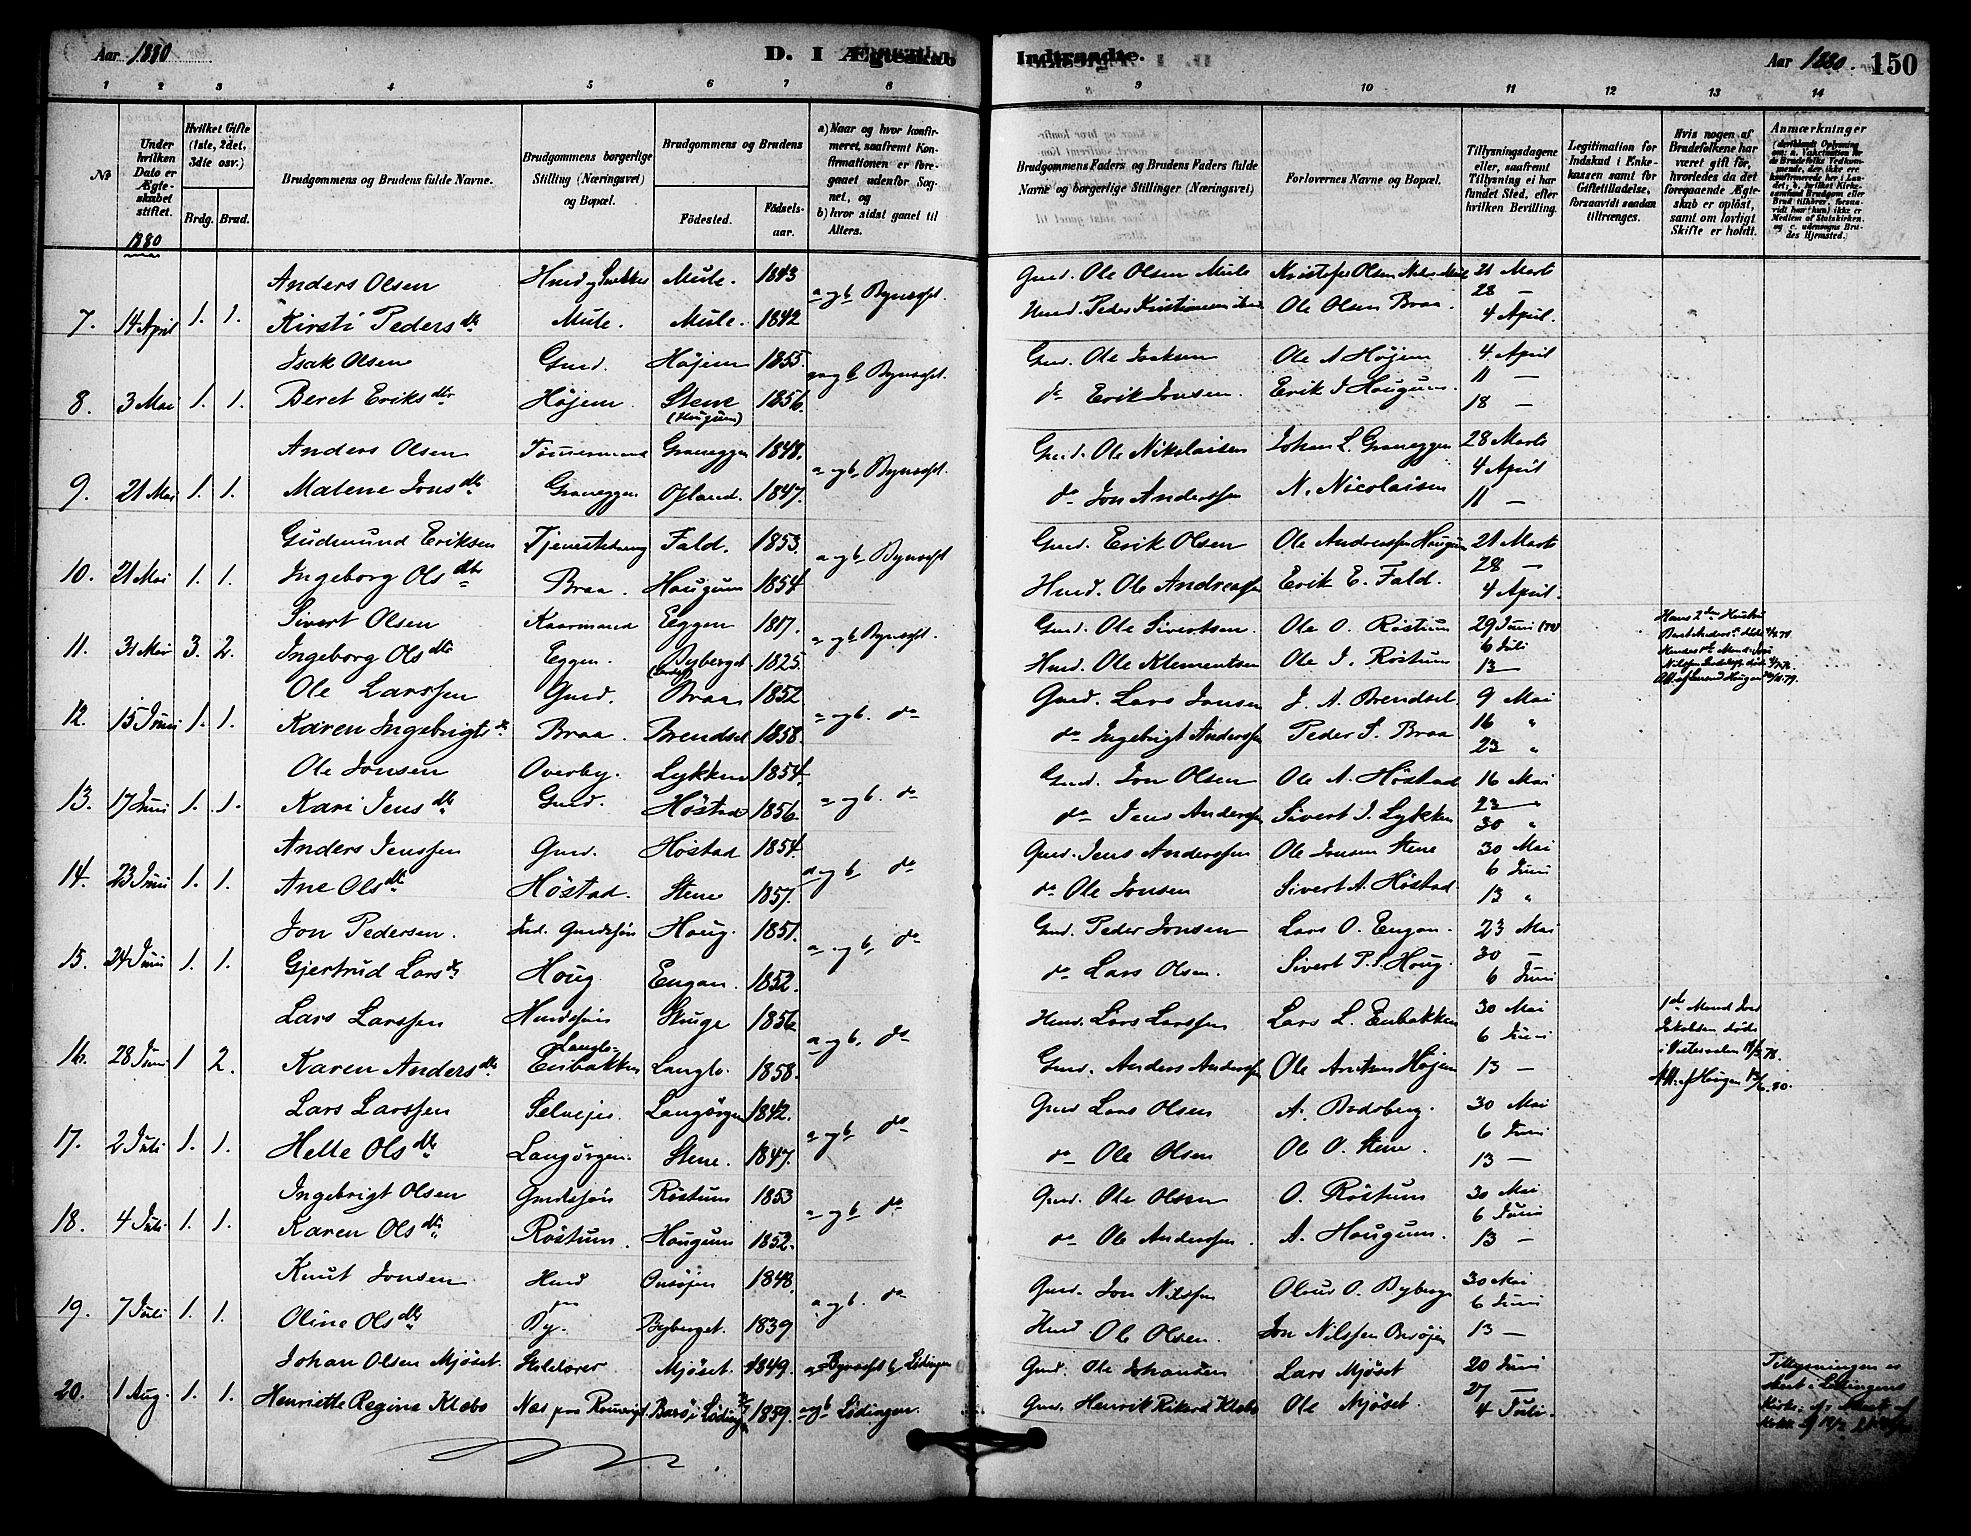 Aar 1880 D. I Ægteskab Indtraadte. Aar 1880. 150
1 2 3 4 5 6 7 8 9 10 11 12 13 14
No
Under hvilken Dato er Ægteskabet stiftet.
Hvilket Gifte (1ste, 2det, 3die osv.)
Brdg. Brud.
Brudgommens og Brudens fulde Navne.
Brudgommens borgerlige Stilling (Næringsvei) og Bopæl.
Brudgommens og Brudens
Fødested. Fødselsaar.
a) Naar og hvor konfirmeret, saafremt Konfirmationen er foregaaet udenfor Sognet, og
b) hvor sidst gaaet til Alters.
Brudgommens Faders og Brudens Faders fulde Navne og borgerlige Stillinger (Næringsvei)
Forlovernes Navne og Bopæl.
Tillysningsdagene eller, saafremt Tillysning ei har fundet Sted, efter hvilken Bevilling.
Legitimation for Indskud i Enkekassen samt for Giftetilladelse, forsaavidt saadan tiltrænges.
Hvis nogen af Brudefolkene har været gift før, hvorledes da det foregaaende Ægteskab er opløst, samt om lovligt Skifte er holdt.
Anmærkninger
1880
Anders Olsen Mule. 1843 a og b Bynæsset. Gmd. Ole Olsen Mule 21 Marts
28 —
7. 14 April 1. 1. Kirsti Peders dtr Mule. Mule. 1842 Ole Olsen Braa. 4 April.
Isak Olsen Gmd. Højem 1855. a og b Bynæsset. Gmd. Ole Ole A Højem 4 April
11 —
8. 3 Mai 1. 1. Beret Eriks dtr Højem. Stene (Hougum) 1856. do Erik Jonsen. Erik J Hougum. 18 —
Anders Olsen Tømmermand Graneggen 1848. a og b Bynæsset. Gmd. Ole Nikolaisen Johan L. Graneggen 28 Marts
4 April
9. 21 Mai 1. 1. Malene Jons dtr Graneggen Opland. 1847. do Jon Anderssen N. Nicolaisen 11 —
Gudmund Eriksen Fald. 1853. a og b. Bynæsset Gmd. Erik Olsen Ole Andreassen Hougum 21 Marts
28 —
10. 21 Mai 1. 1. Ingeborg Ols dtr Braa. Hougum 1854. Hmd. Ole Andreassen Erik E. Fald. 4 April.
Sivert Olsen Kaarmand Eggen 1817. a og b Bynæsset. Gmd. Ole Sivertsen. Ole O. Røstum 29 Juni (79)
6 Juli
11. 31 Mai 3. 2. Ingeborg Ols dtr Eggen. Byberget 1825. Hmd. Ole Klementsen Ole J. Røstum 13 —
Ole Larssen Gmd. Braa 1852 a og b. do Gmd. Lars Jonsen J. A. Brendsel. 9 Mai
16 "
12. 15 Juni 1. 1. Karen Ingebrigts dtr Braa. Brendsel 1858. do Ingebrigt Anderssen Peder S. Braa 23 "
Ole Jonsen Overby. Lykken 1854. a og b. do Gmd. Jon Olsen Ole A. Høstad 16 Mai
23 "
13. 17 Juni 1. 1. Kari Jens dtr Gmd. Høstad 1856. do Jens Anderssen Sivert J. Lykken 30 "
Anders Jenssen Gmd. Høstad 1854. a og b, do Gmd. Jens Anderssen Ole Jonsen Stene 30 Mai
6 Juni
14. 23 Juni 1. 1. Ane Ols dtr Høstad. Stene 1857. do Ole Jonsen Sivert A. Høstad. 13 "
Jon Pedersen. Houg. 1851. a og b, do Gmd. Peder Jonsen Lars O. Engan. 23 Mai
30 —
15. 24 Juni 1. 1. Gjertrud Lars dtr Houg Engan. 1852. do Lars Olsen. Sivert P. S. Houg. 6 Juni
Lars Larssen Stuge 1856. a og b, do Hmd. Lars Larssen Lars L. Enbakken 30 Mai
6 Juni
16. 28 Juni 1 2. Karen Anders dtr Enbakken Langlo. 1858. Gmd. Anders Anderssen 13 —
Lars Larssen Selveier Langørgen 1842. a og b do Gmd Lars Olsen 30 Mai
6 Juni
17. 2 Juli 1. 1. Helle Ols dtr Langørgen. Stene. 1847. do Ole Olsen Ole O. Stene. 13 —
Ingebrigt Olsen Gmdssøn Røstum 1853 a og b do Gmd. Ole Olsen O. Røstum 30 Mai
6 Juni
18. 4 Juli 1. 1. Karen Ols dtr Røstum. Hougum 1852. do Ole Anderssen. A. Hougum. 13 —
Knut Jonsen Hmd 1848. a og b. do Gmd. Jon Nilssen Olaus O. Byberge 30 Mai
6 Juni
19. 7 Juli 1. 1. Oline Ols dtr By. Byberget. 1839 Hmd. Ole Olsen. Jon Nilssen 13 —
Johan Olsen Mjøset. Mjøset. 1849. a Bynæsset b Lødingen Gmd. Ole Johansen Lars Mjøset 20 Juni
27 —
20. 1 Aug. 1. 1. Henriette Regine Klæbo 1859. a og b Lødingen. Gmd. Henrik Rikard Klæbo Ole Mjøset. 4 Juli.